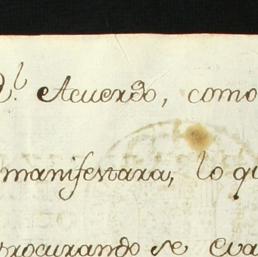 Acuerdo, como
manifestara, lo qu
procurando se eva